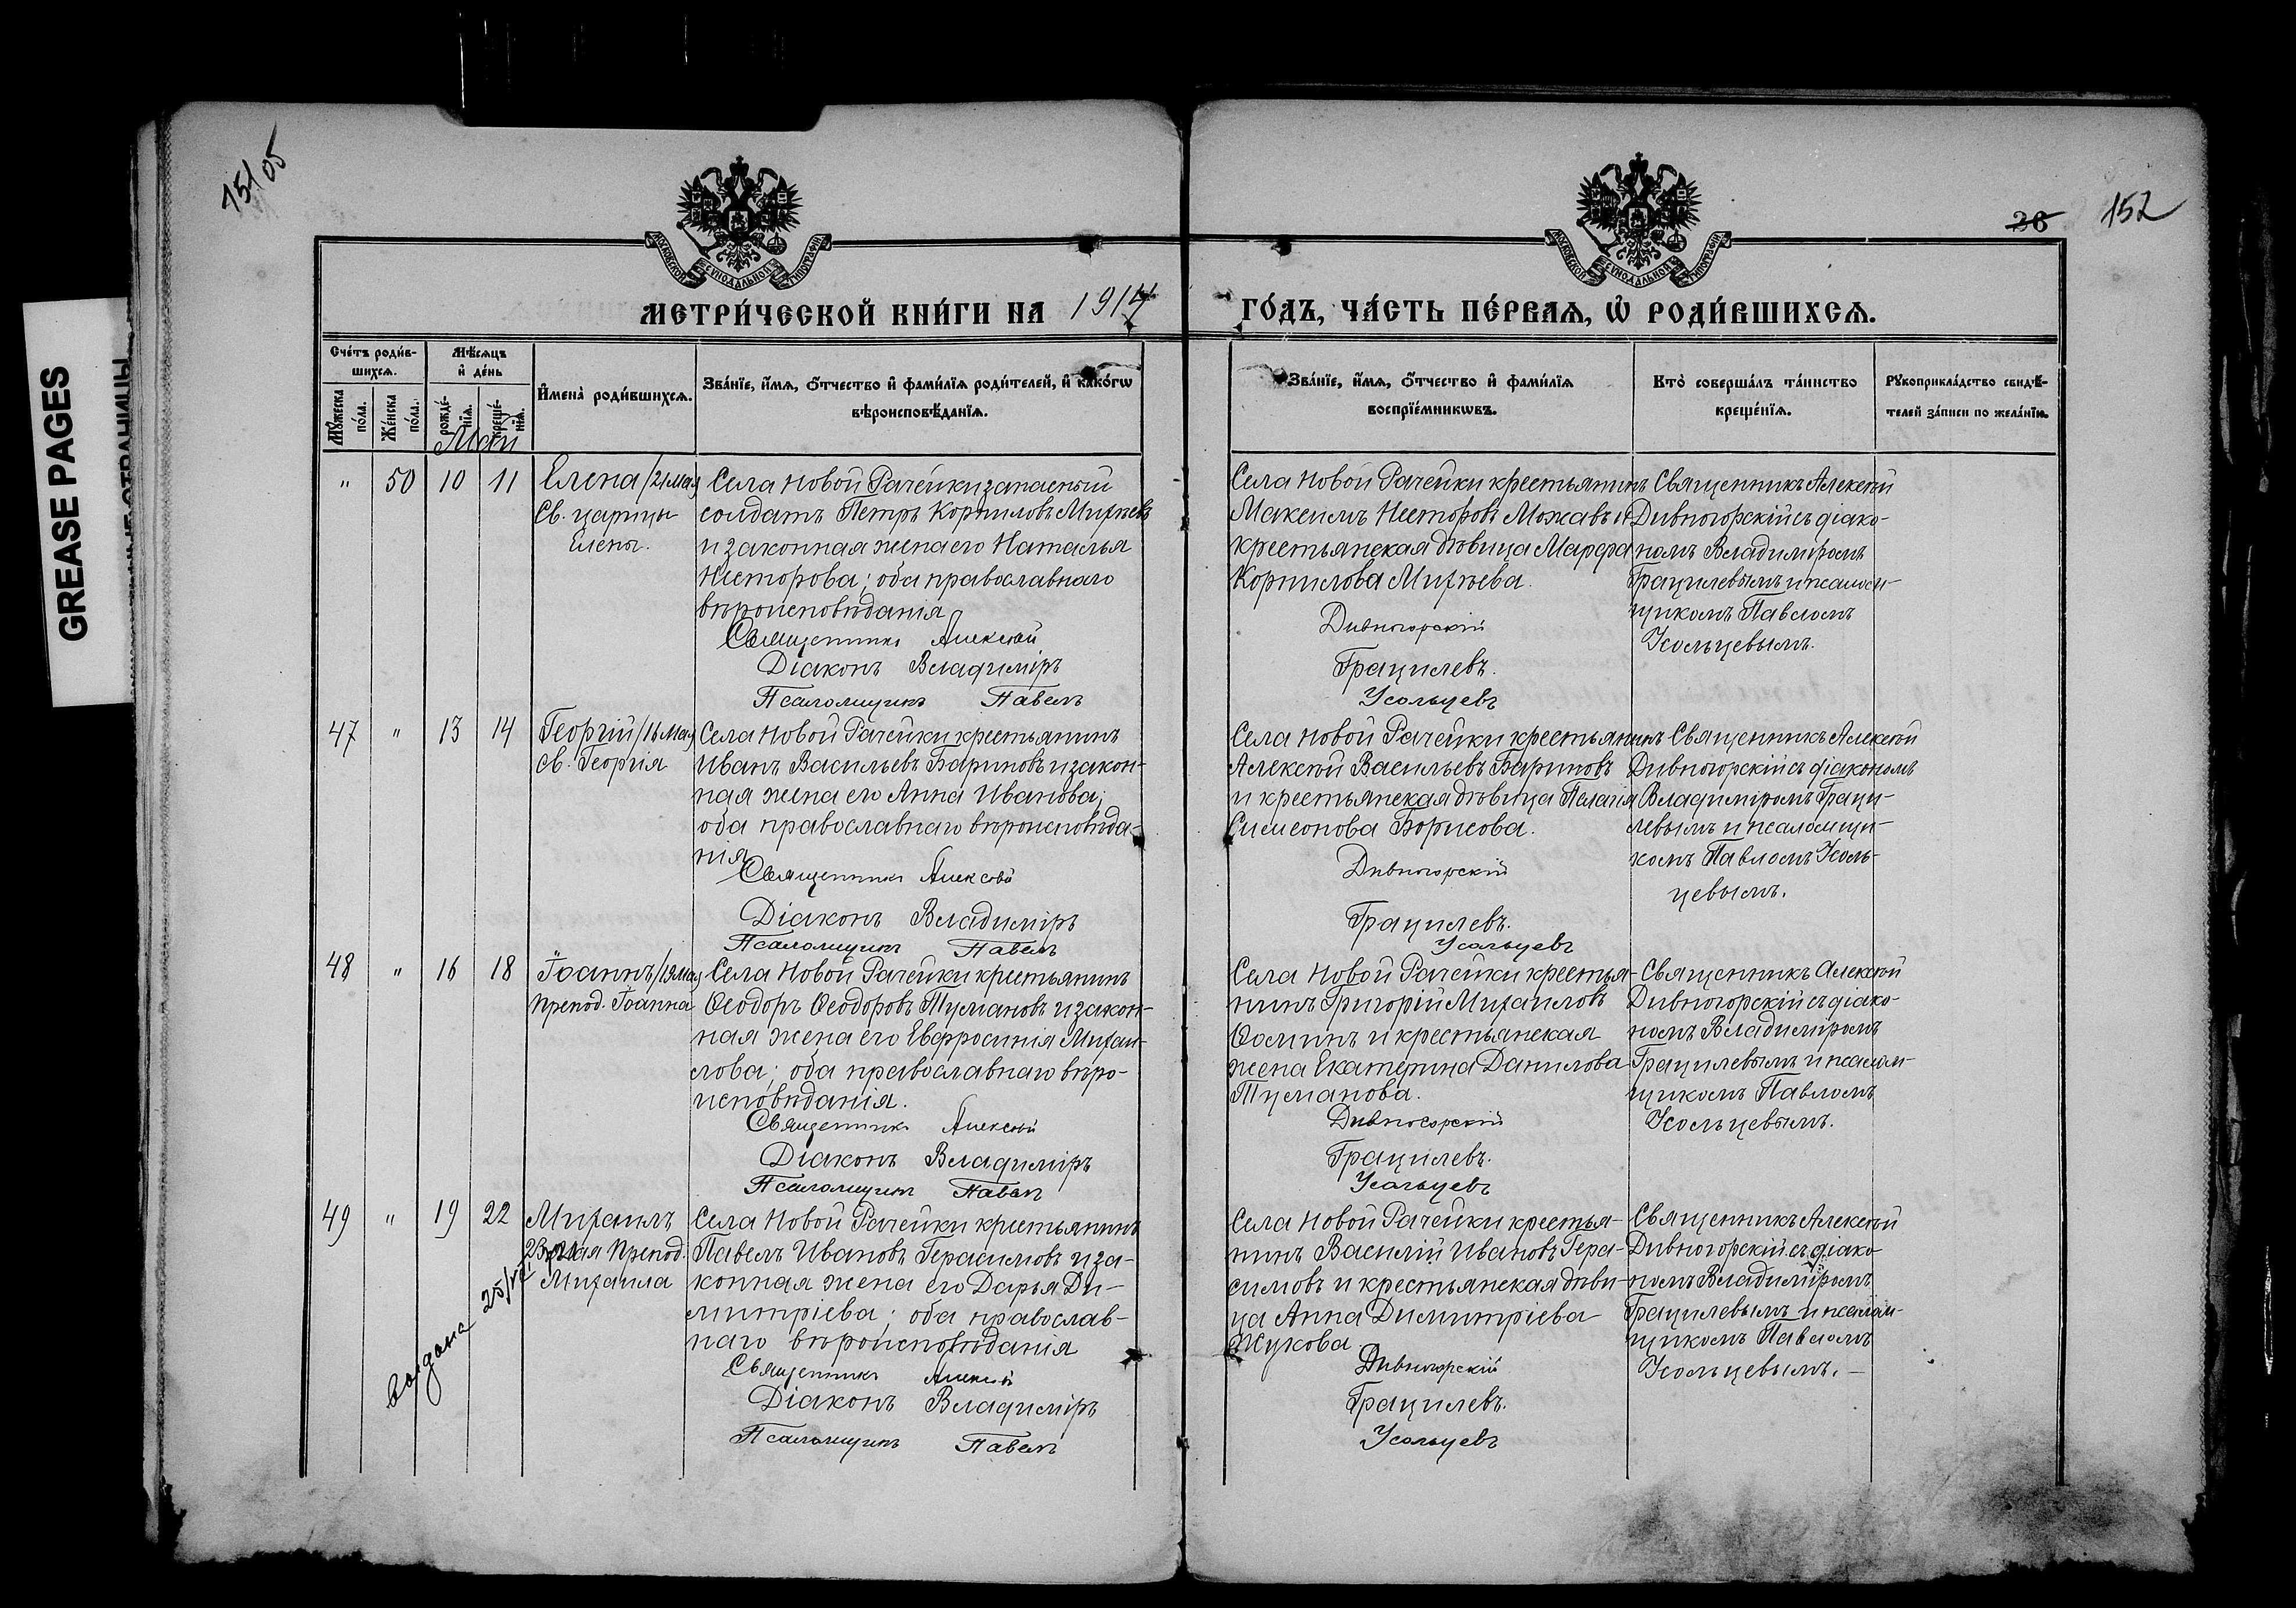 GREASE PAGES
151 об
36
152
МОСКОВСКОЙ СѴНОДАЛЬНОЙ ТИПОГРАФІИ
МОСКОВСКОЙ СѴНОДАЛЬНОЙ ТИПОГРАФІИ
МЕТРИ́ЧЕСКОЙ КНИ́ГИ НА 1914
ГО́ДЪ, ЧА́СТЬ ПЕ́РВАѦ, Ѽ РОДИ́ВШИХСѦ.
Сче́тъ роди́в-
шихсѧ.
Мѣ́сѧцъ
и҆ де́нь
Мꙋ́жеска по́ла.
Же́нска по́ла.
рожде́-нїѧ.
креще́-нїѧ.
И҆мена̀ роди́вшихсѧ.
Зва́нїе, и҆́мѧ, ѻ҆́тчество и҆ фами́лїѧ роди́телей, и҆ како́гѡ
вѣроисповѣ́данїѧ.
Зва́нїе, и҆́мѧ, ѻ҆́тчество и҆ фами́лїѧ
воспрїе́мникѡвъ.
Кто̀ соверша́лъ та́инство
креще́нїѧ.
Рꙋкоприкла́дство свидѣ́-
телей за́писи по жела́нїю.
Май
" 50 10 11
Елена /21 мая
Св. царицы
Елены.
Села Новой Рачейки запасный
солдатъ Петръ Корниловъ Михѣевъ
и законная жена его Наталья
Несторова; оба православнаго
вѣроисповѣданія
Священникъ Алексѣй
Діаконъ Владиміръ
Псаломщикъ Павелъ
Села Новой Рачейки крестьянинъ
Максимъ Несторовъ Можавъ и
крестьянская дѣвица Марфа
Корнилова Михѣева.
Дивногорскій
Грацилевъ.
Усольцевъ
Священникъ Алексѣй
Дивногорскій съ діако-
номъ Владиміромъ
Грацилевымъ и псалом-
щикомъ Павломъ
Усольцевымъ.
47 " 13 14
Георгій /16 мая
св. Георгія
Села Новой Рачейки крестьянинъ
Иванъ Васильевъ Бариновъ и закон-
ная жена его Анна Иванова;
оба православнаго вѣроисповѣда-
нія
Священникъ Алексѣй
Діаконъ Владиміръ
Псаломщикъ Павелъ
Села Новой Рачейки крестьянинъ
Алексѣй Васильевъ Бариновъ
и крестьянская дѣвица Пелагія
Симеонова Борисова.
Дивногорскій
Грацилевъ.
Усольцевъ
Священникъ Алексѣй
Дивногорскій съ діакономъ
Владиміромъ Граци-
левымъ и псаломщи-
комъ Павломъ Усоль-
цевымъ.
48 " 16 18
Іоаннъ /19 мая
препод. Іоанна
Села Новой Рачейки крестьянинъ
Ѳеодоръ Ѳеодоровъ Тумановъ и закон-
ная жена его Евфросинія Михаи-
лова; оба православнаго вѣро-
исповѣданія.
Священникъ Алексѣй
Діаконъ Владиміръ
Псаломщикъ Павелъ
Села Новой Рачейки крестья-
нинъ Григорій Михаиловъ
Ѳоминъ и крестьянская
жена Екатерина Данилова
Туманова.
Дивногорскій
Грацилевъ.
Усольцевъ
Священникъ Алексѣй
Дивногорскій съ діако-
номъ Владиміромъ
Грацилевымъ и псалом-
щикомъ Павломъ
Усольцевымъ.
49 " 19 22
Михаилъ
23 мая препод.
Михаила
выдана
Села Новой Рачейки крестьянинъ
Павелъ Ивановъ Герасимовъ и за-
конная жена его Дарья Ди-
митріева; оба православ-
наго вѣроисповѣданія
Священникъ Алексѣй
Діаконъ Владиміръ
Псаломщикъ Павелъ
Села Новой Рачейки крестья-
нинъ Василій Ивановъ Гера-
симовъ и крестьянская дѣви-
ца Анна Димитріева
Жукова
Дивногорскій
Грацилевъ.
Усольцевъ
Священникъ Алексѣй
Дивногорскій съ діако-
номъ Владиміромъ
Грацилевымъ и псалом-
щикомъ Павломъ
Усольцевымъ. —